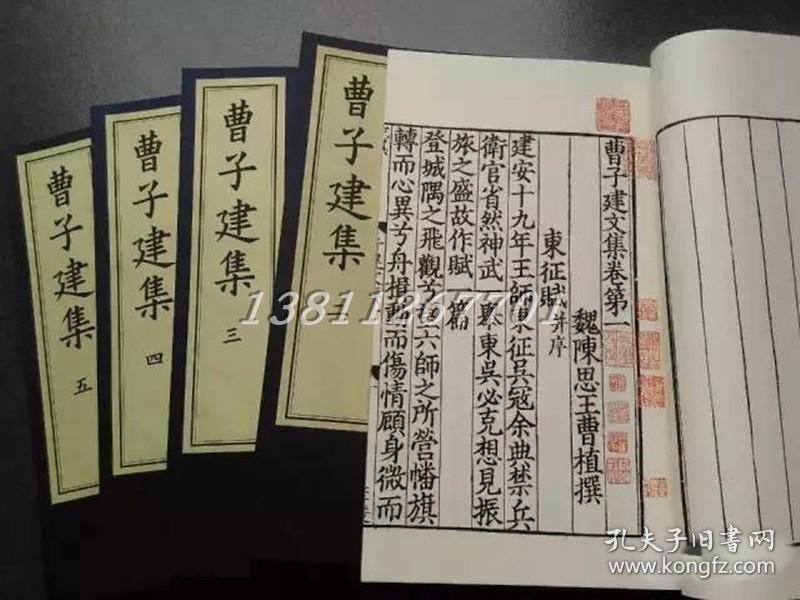 曹子建文集卷第一
魏陳思王曹植撰
東征賦并序
建安十九年王師東征吳寇余典禁兵
衛官省然神武一舉東吳必克想見振
旅之盛故作賦一篇
登城隅之飛觀兮望六師之所營幡旗
轉而心異兮舟楫動而傷情顧身微而
曹子建集
二
曹子建集
三
曹子建集
四
曹子建集
五
13811267701
孔夫子旧书网
kongfz.com